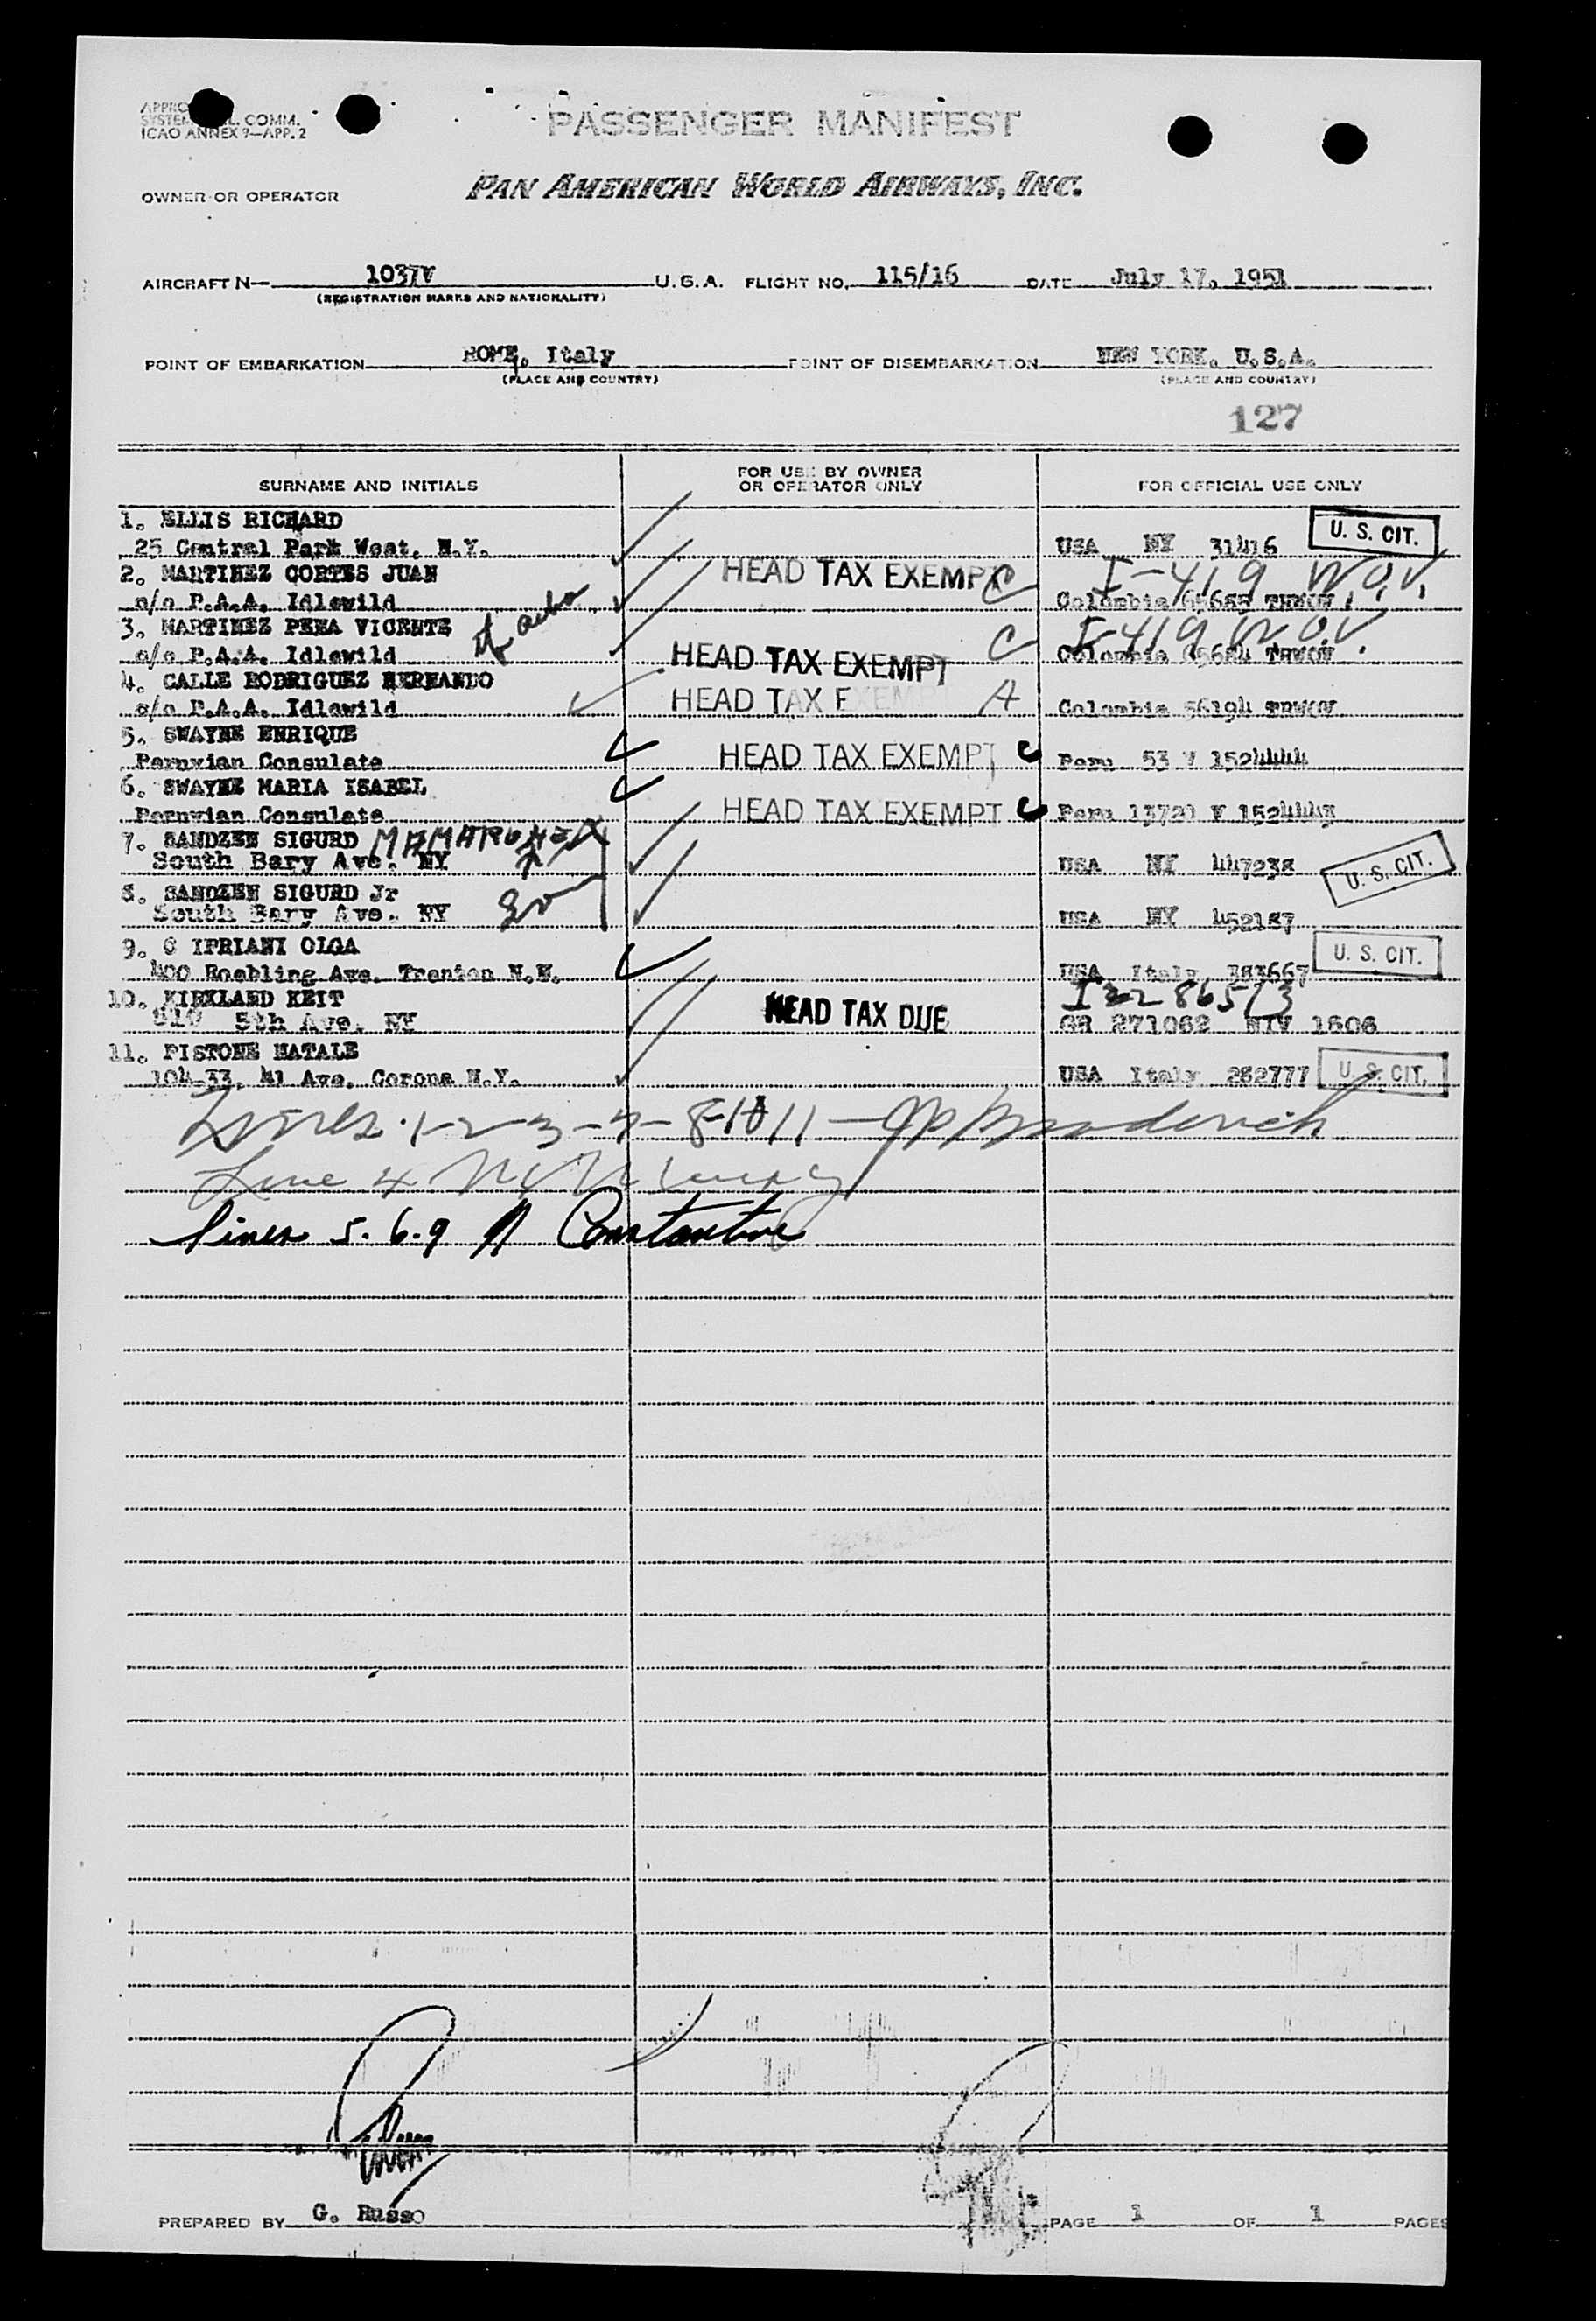 APPRO
SYSTEM L. COMM.
ICAO ANNEX 9—APP. 2
PASSENGER MANIFEST
OWNER OR OPERATOR PAN AMERICAN WORLD AIRWAYS, INC.
AIRCRAFT N— 1037V U.S.A. FLIGHT NO. 115/16 DATE July 17, 1951
(REGISTRATION MARKS AND NATIONALITY)
POINT OF EMBARKATION ROME, Italy POINT OF DISEMBARKATION NEW YORK. U.S.A.
(PLACE AND COUNTRY) (PLACE AND COUNTRY)
127
SURNAME AND INITIALS FOR USE BY OWNER OR OPERATOR ONLY FOR OFFICIAL USE ONLY
1. ELLIS RICHARD
25 Central Park West. N.Y. USA NY 31416 U. S. CIT.
2. MARTINEZ CORTES JUAN HEAD TAX EXEMPT C I-419 W.O.V.
c/o P.A.A. Idlewild Colombia TRWOV
3. MARTINEZ PENA VICENTE C I-419 W.O.V.
c/o P.A.A. Idlewild HEAD TAX EXEMPT Colombia TRWOV
4. CALLE RODRIGUEZ HERNANDO HEAD TAX EXEMPT A
c/o P.A.A. Idlewild Colombia 56194 TRWOV
5. SWAYNE ENRIQUE HEAD TAX EXEMPT C
Peruvian Consulate Peru 53 V 152444
6. SWAYNE MARIA ISABEL HEAD TAX EXEMPT C
Peruvian Consulate Peru 13720 V 152443
7. SANDZEN SIGURD MAMARONECK
South Bary Ave. NY USA NY 447238 U. S. CIT.
8. SANDZEN SIGURD Jr
South Bary Ave. NY USA NY 452187
9. C IPRIANI OLGA U. S. CIT.
400 Roebling Ave. Trenton N.H. USA Italy 383667
10. KIRKLAND KEIT HEAD TAX DUE
5th Ave. NY GR 271062 NIV 1606
11. PISTONE NATALE
104-33, 41 Ave. Corona N.Y. USA Italy 282777 U. S. CIT.
Lines 1-2-3-7-8-10 11 — Broderick
Line 4
lines 5. 6. 9 A Constantine
PREPARED BY G. Russo PAGE 1 OF 1 PAGES